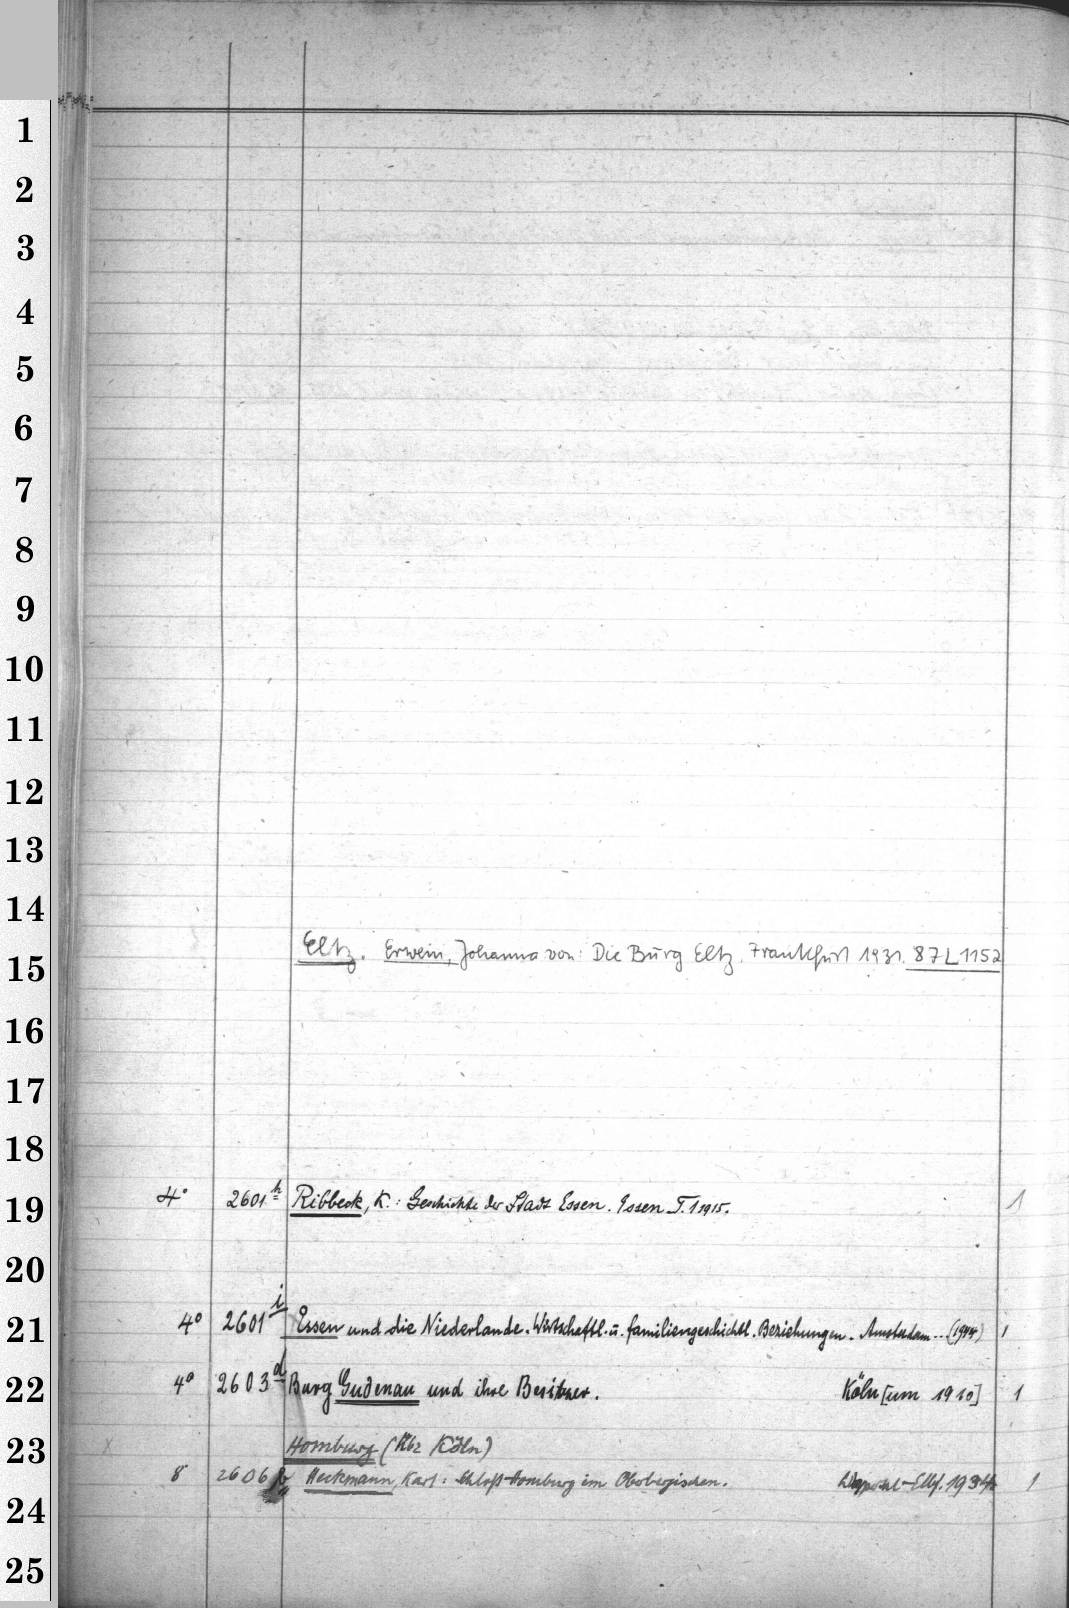 1
2
3
4
5
6
7
8
9
10
11
12
13
14
Eltz. Erwein, Johanna von: Die Burg Eltz. Frankfurt 1931. 87 L 1152
15
16
17
18
4° 2601 h Ribbeck, K.: Geschichte der Stadt Essen. Essen T. 1 1915. 1
19
20
4° 2601 i Essen und die Niederlande. Wirtschaftl. u. familiengeschichtl. Beziehungen. Amsterdam... (1944) 1
21
4° 2603 d Burg Gudenau und ihre Besitzer. Köln [um 1910] 1
22
23 Homburg (Rbz Köln)
8° 2606 Heckmann, Karl: Schloß Homburg im Oberbergischen. 1
24
25